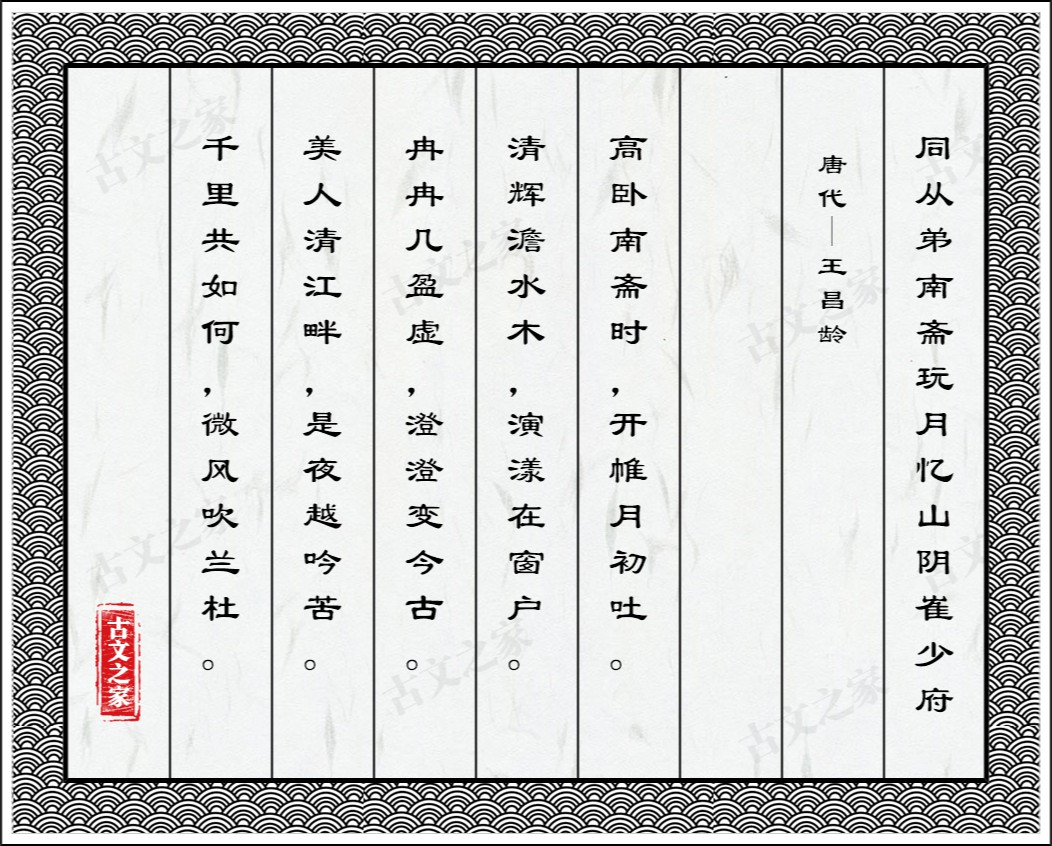 同从弟南斋玩月忆山阴崔少府
唐代｜王昌龄
高卧南斋时，开帷月初吐。
清辉澹水木，演漾在窗户。
冉冉几盈虚，澄澄变今古。
美人清江畔，是夜越吟苦。
千里共如何，微风吹兰杜。
古文之家